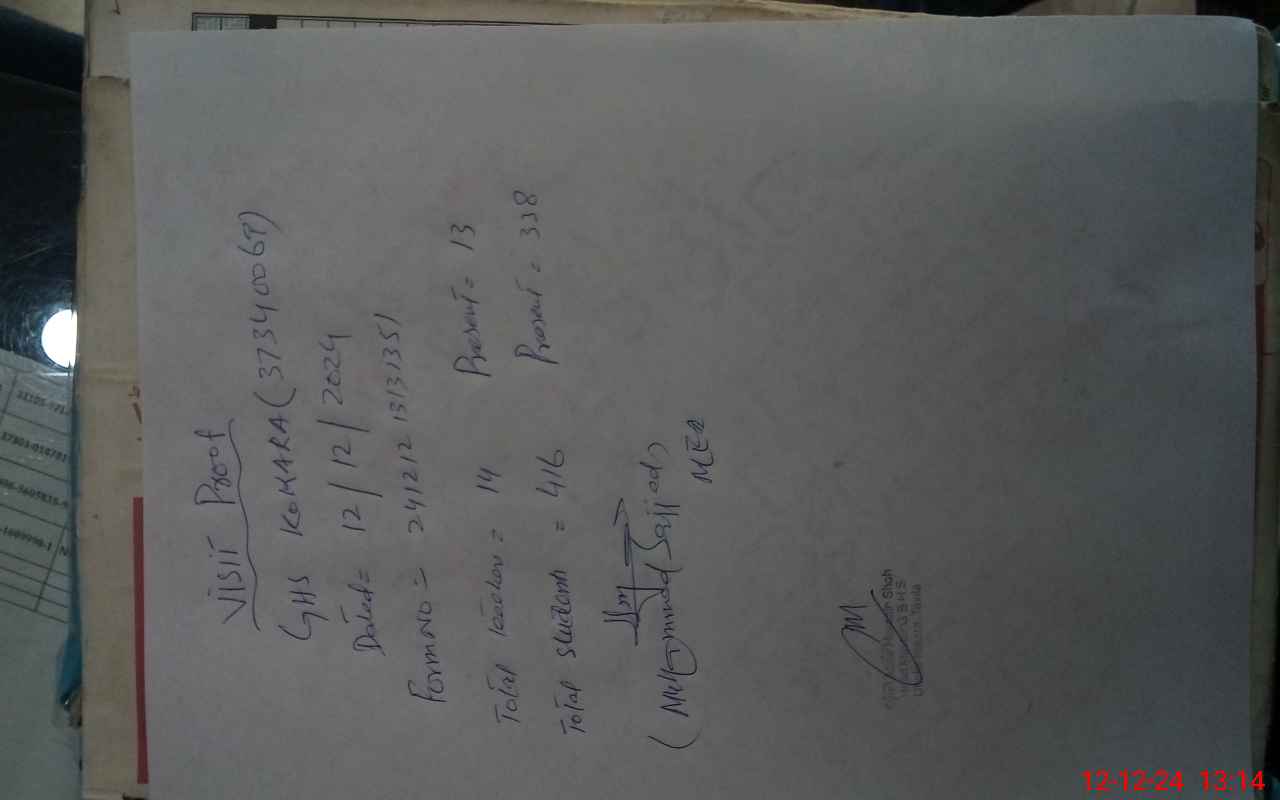 Visit Proof
GHS KOHARA (37340067)
Dated = 12/12/2024
Form No = 241212131351
Total teachers = 14 Present = 13
Total students = 416 Present = 338
(Muhammad Sajjad)
MEA
Shah
GBHS
12-12-24 13:14